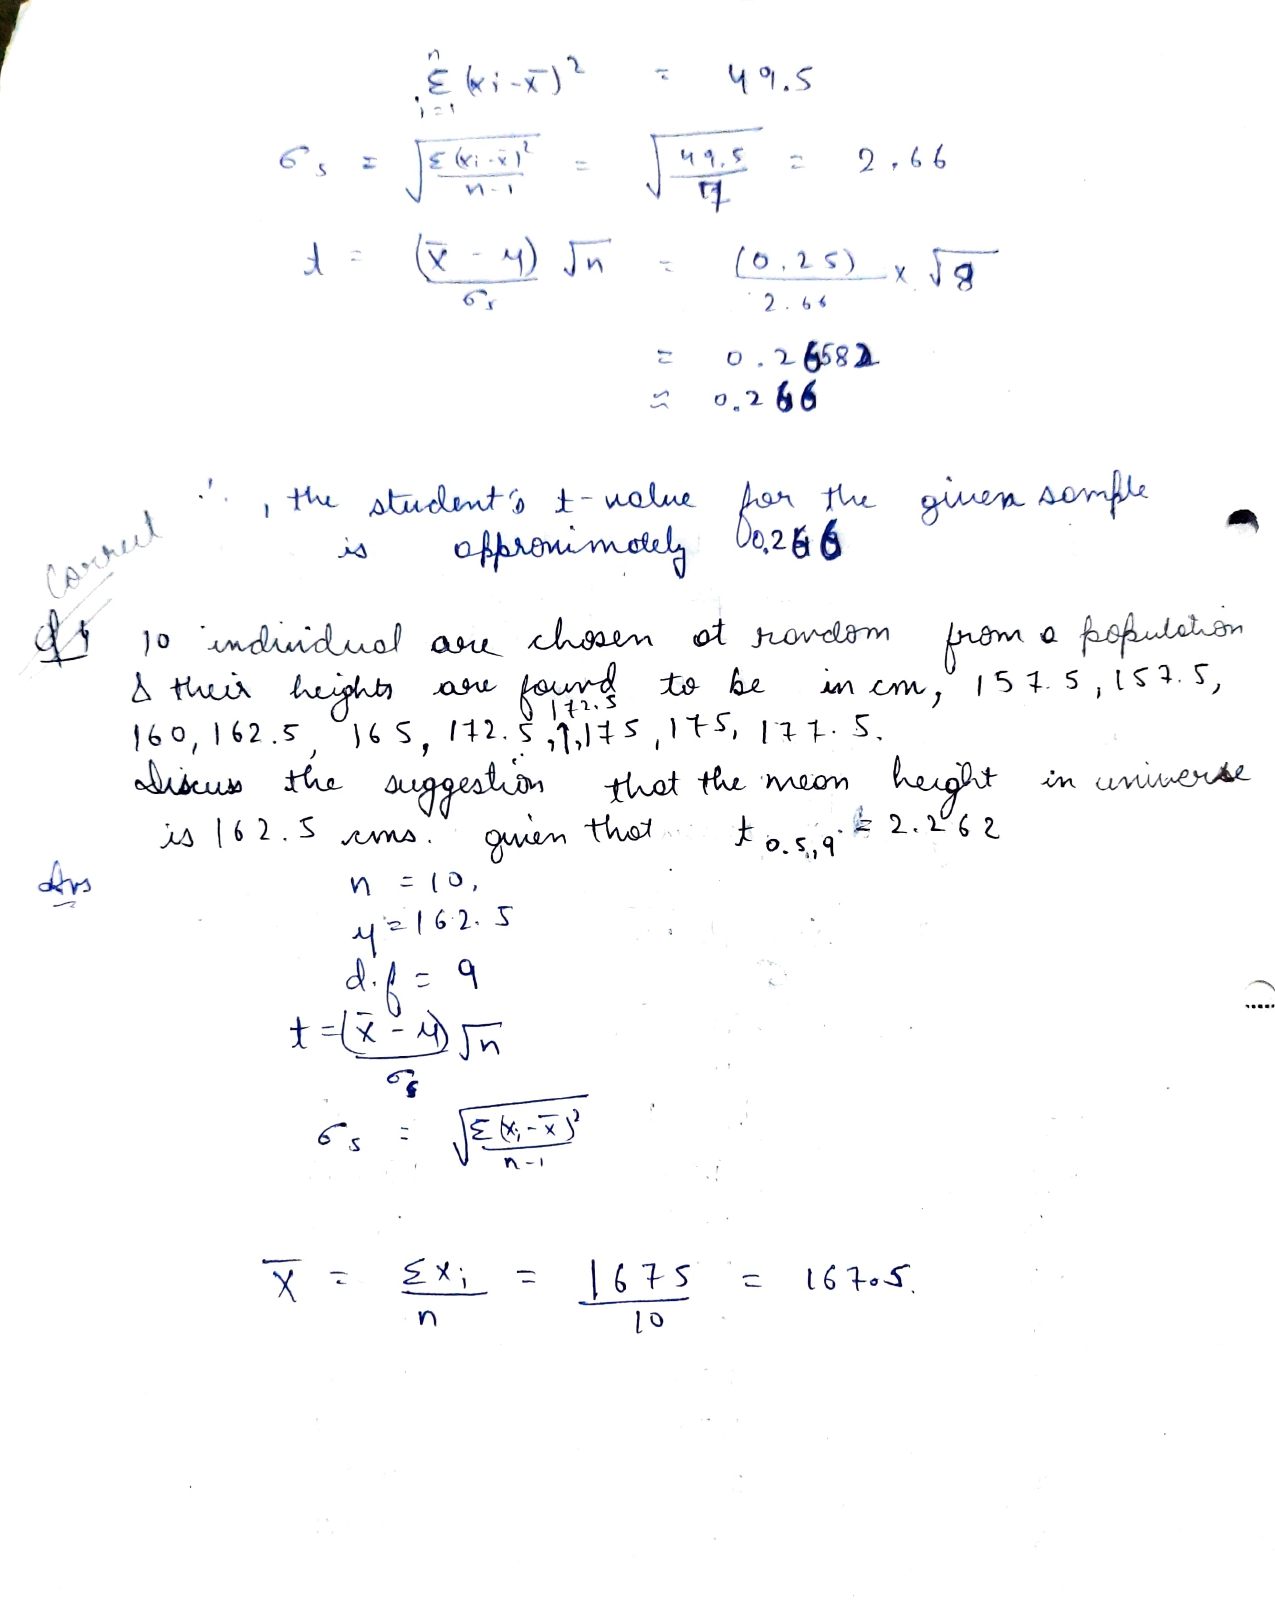 n
Σ (xi - x̄)² = 49.5
i=1
σs = √(Σ(xi - x̄)² / n-1) = √(49.5 / 7) = 2.66
t = (x̄ - μ) √n / σs = (0.25) / 2.66 × √8
= 0.26582
≈ 0.266
∴, the student's t-value for the given sample
is approximately 0.266
Correct
10 individual are chosen at random from a population
& their heights are found to be in cm, 157.5, 157.5,
172.5
160, 162.5, 165, 172.5, ↑, 175, 175, 177.5.
Discuss the suggestion that the mean height in universe
is 162.5 cms. given that t0.5,9 = 2.262
Ans n = 10,
μ = 162.5
d.f = 9
t = (x̄ - μ) √n / σs
σs = √(Σ(xi - x̄)² / n-1)
X̄ = Σxi / n = 1675 / 10 = 167.5.